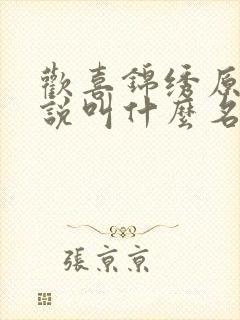 歡喜錦绣原
說叫什麼名
張京京